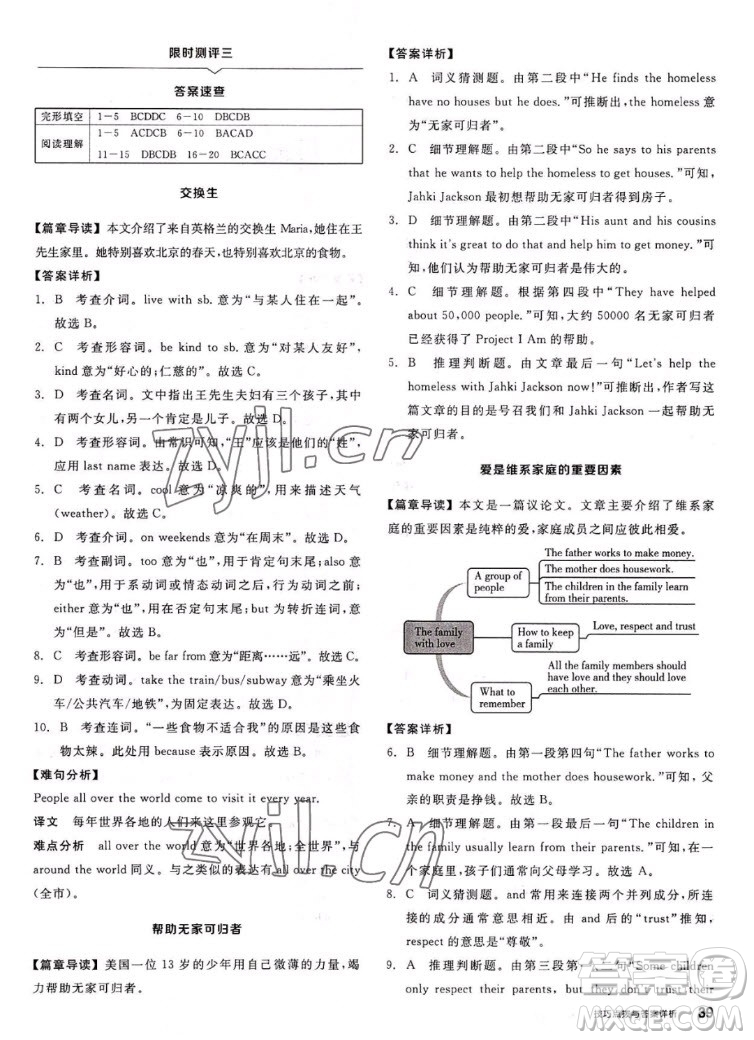 限时测评三
答案速查
完形填空 1-5 BCDDC 6-10 DBCDB
阅读理解 1-5 ACDCB 6-10 BACAD
11-15 DBCDB 16-20 BCACC
交换生
【篇章导读】本文介绍了来自英格兰的交换生 Maria,她住在王
先生家里。她特别喜欢北京的春天,也特别喜欢北京的食物。
【答案详析】
1. B 考查介词。live with sb. 意为“与某人住在一起”。
故选 B。
2. C 考查形容词。be kind to sb. 意为“对某人友好”,
kind 意为“好心的;仁慈的”。故选 C。
3. D 考查名词。文中指出王先生夫妇有三个孩子,其中
有两个女儿,另一个肯定是儿子。故选 D。
4. D 考查形容词。由常识可知,“王”应该是他们的“姓”,
应用 last name 表达。故选 D。
5. C 考查形容词。cool 意为“凉爽的”,用来描述天气
(weather)。故选 C。
6. D 考查介词。on weekends 意为“在周末”。故选 D。
7. B 考查副词。too 意为“也”,用于肯定句末尾;also 意
为“也”,用于系动词或情态动词之后,行为动词之前;
either 意为“也”,用在否定句末尾;but 为转折连词,意
为“但是”。故选 B。
8. C 考查形容词。be far from 意为“距离……远”。故选 C。
9. D 考查动词。take the train/bus/subway 意为“乘坐火
车/公共汽车/地铁”,为固定表达。故选 D。
10. B 考查连词。“一些食物不适合我”的原因是这些食
物太辣。此处用 because 表示原因。故选 B。
【难句分析】
People all over the world come to visit it every year.
译文 每年世界各地的人们来这里参观它。
难点分析 all over the world 意为“世界各地;全世界”,与
around the world 同义。与之类似的表达有 all over the city
(全市)。
帮助无家可归者
【篇章导读】美国一位 13 岁的少年用自己微薄的力量,竭
力帮助无家可归者。
【答案详析】
1. A 词义猜测题。由第二段中“He finds the homeless
have no houses but he does.”可推断出,the homeless 意
为“无家可归者”。
2. C 细节理解题。由第二段中“So he says to his parents
that he wants to help the homeless to get houses.”可知,
Jahki Jackson 最初想帮助无家可归者得到房子。
3. D 细节理解题。由第三段中“His aunt and his cousins
think it's great and help him to get money.”可知,
他们认为帮助无家可归者是伟大的。
4. C 细节理解题。根据第四段中“They have helped
about 50,000 people.”可知,大约 50000 名无家可归者
已经获得了 Project I Am 的帮助。
5. B 推理判断题。由文章最后一句“Let's help the
homeless with Jahki Jackson now!”可推知,作者写这
篇文章的目的是号召我们和 Jahki Jackson 一起帮助无
家可归者。
爱是维系家庭的重要因素
【篇章导读】本文是一篇议论文。文章主要介绍了维系家
庭的重要因素是纯粹的爱,家庭成员之间应彼此相爱。
The father works to make money.
A group of people
The mother does housework.
The children in the family learn from their parents.
The family with love
How to keep a family
Love, respect and trust
What to remember
All the family members should have love and should love each other.
【答案详析】
6. B 细节理解题。由第一段第四句“The father works to
make money and the mother does housework.”可知,父
亲的职责是挣钱。故选 B。
7. A 细节理解题。由第一段最后一句“The children in
the family learn from their parents.”可知,在一
个家庭里,孩子们通常向父母学习。故选 A。
8. C 词义猜测题。and 用来连接两个并列成分,所连
接的成分通常意义相近,由后面的“trust”推知,
respect 的意思是“尊敬”。
9. A 推理判断题。由第三段第二句“Some children
not only respect their parents, but they
技巧点拨与答案详析 39
zyjl.cn
zyjl.cn